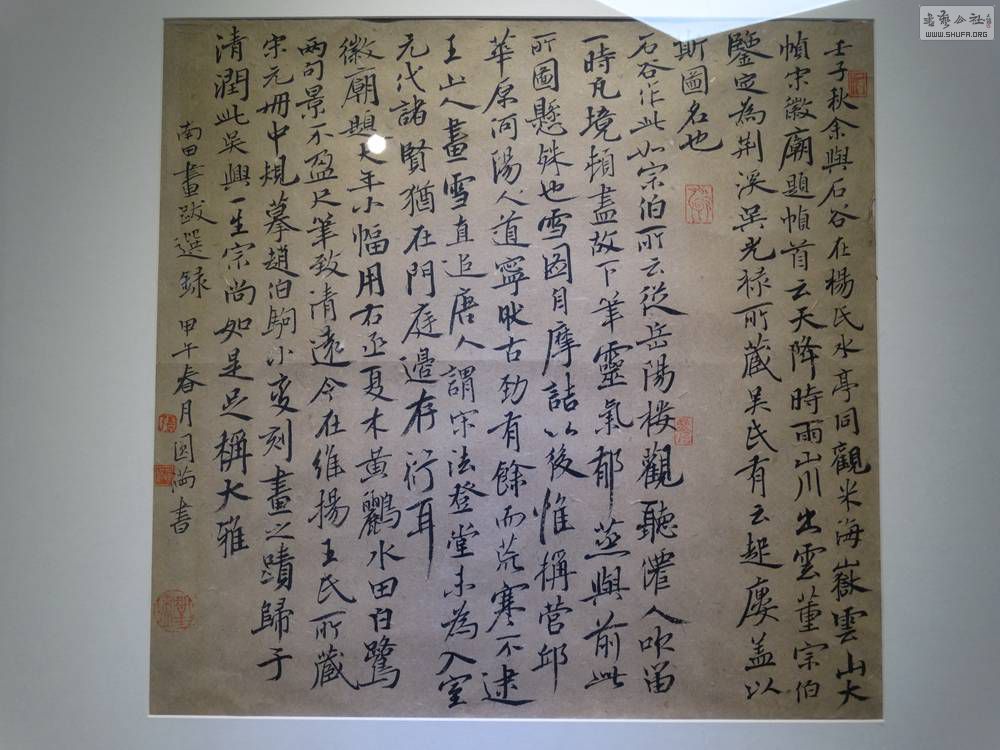 壬子秋余與石谷在楊氏水亭同觀米海嶽雲山大
幀宋徽廟題幀首云天降時雨山川出雲董宗伯
鑒定為荆溪吳光祿所藏吴氏有云起廔盖以
斯圖名也
石谷作此如宗伯所云從岳陽楼觀聽儂人吹笛
一時凡境頓盡故下筆靈氣郁蒸與前此
所圖懸殊也雪图自摩詰以後惟稱營邱
華原河陽人道寧然古劲有餘而荒寒不逮
王山人畫雪直追唐人謂宋法登堂未為入室
元代諸賢猶在門庭邊存衍耳
徽廟題大年小幅用右丞夏木黄鸝水田白鷺
两句景不盈尺筆致清遠今在维揚王氏所藏
宋元册中規摹趙伯駒小变刻畫之蹟歸于
清潤此吴興一生宗尚如是足稱大雅
南田畫跋選録 甲午春月 書
書藝公社
WWW.SHUFA.ORG